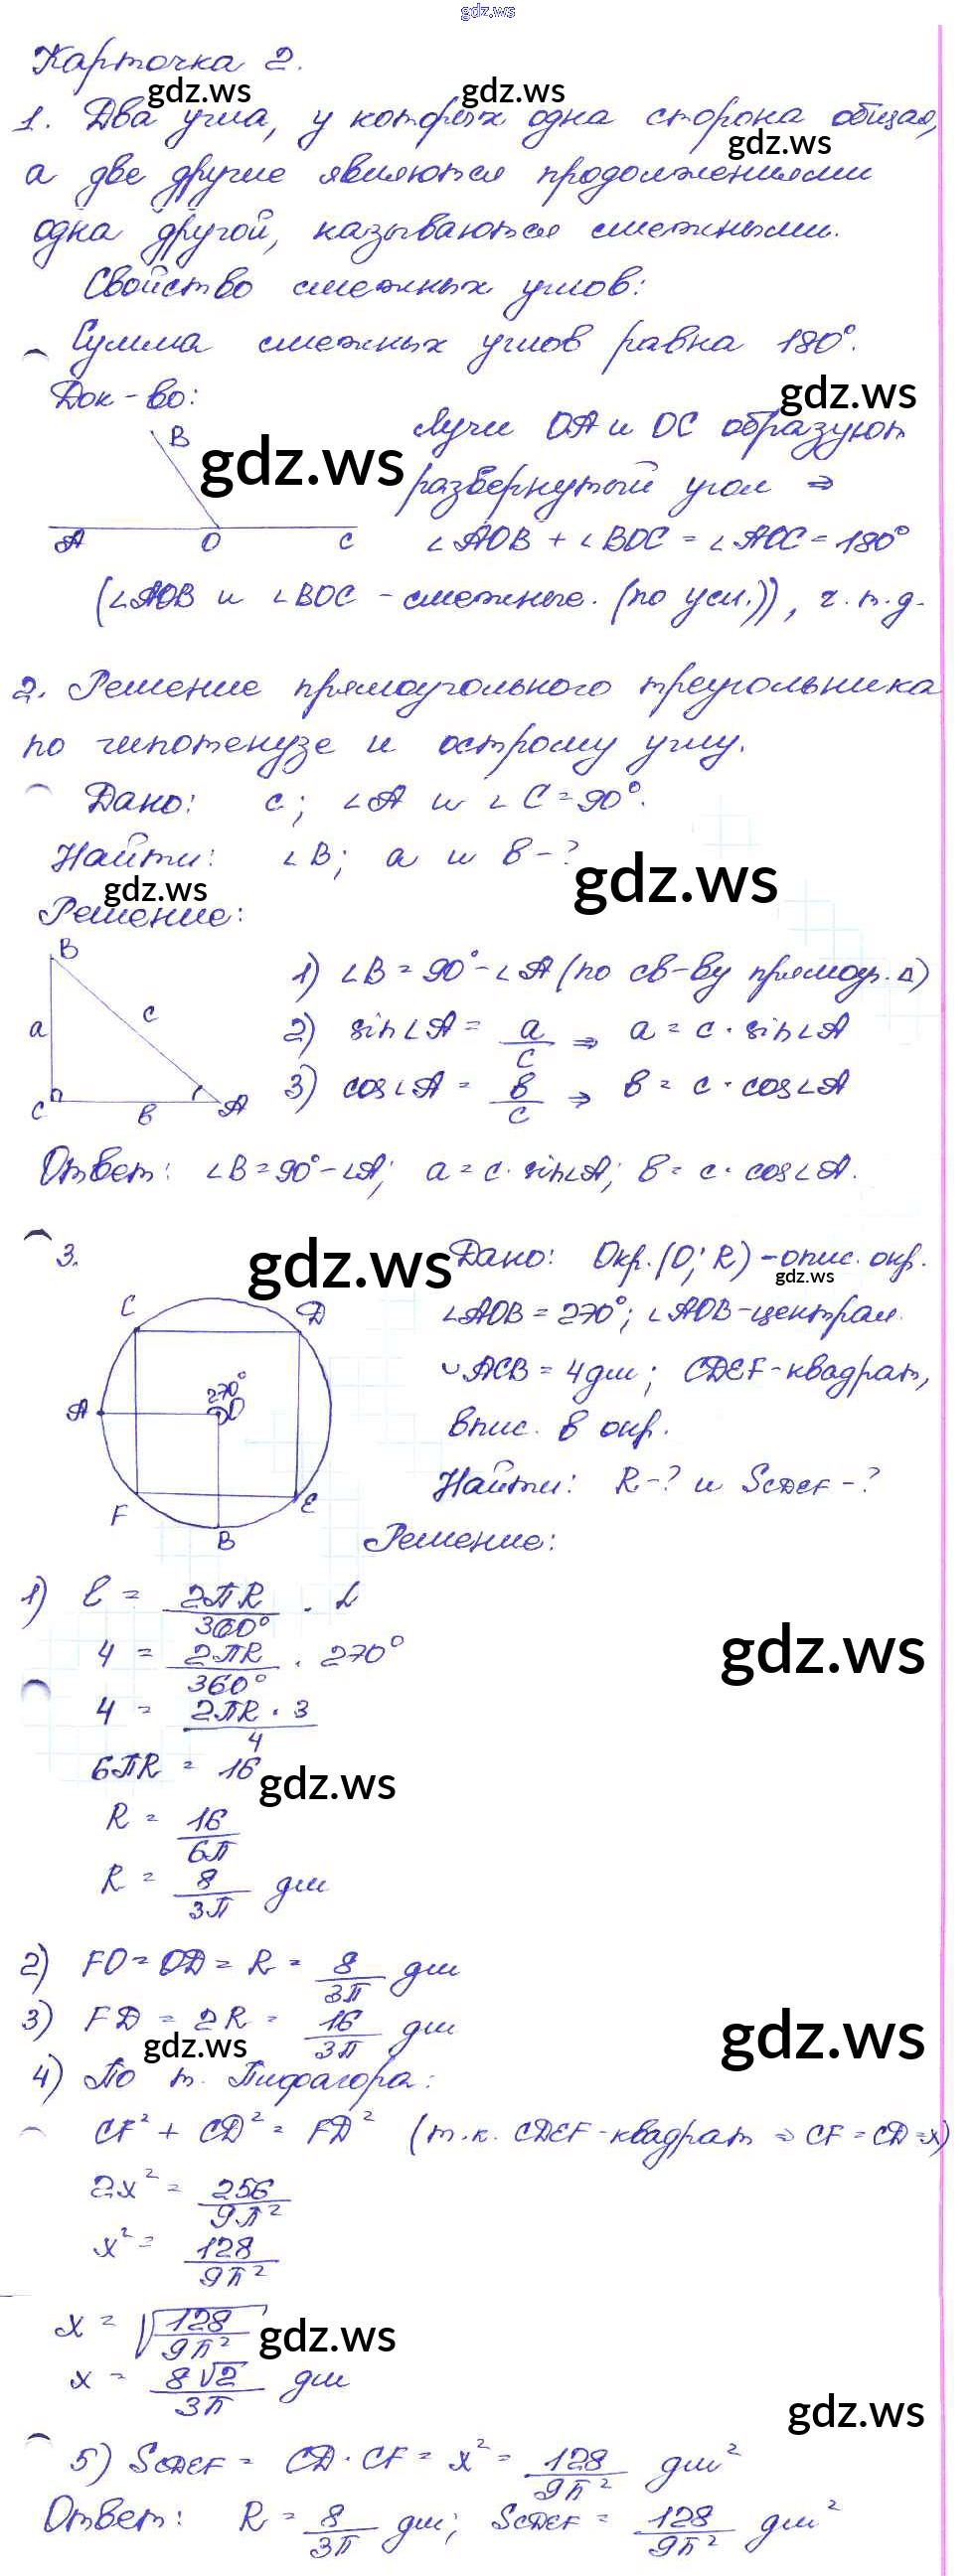 gdz.ws
Карточка 2.
gdz.ws gdz.ws
1. Два угла, у которых одна сторона общая,
gdz.ws
а две другие являются продолжениями
одна другой, называются смежными.
Свойство смежных углов:
Сумма смежных углов равна 180°.
Док-во:
gdz.ws
B
gdz.ws
A O C
Лучи OA и OC образуют
развернутый угол ⇒
∠AOB + ∠BOC = ∠AOC = 180°
(∠AOB и ∠BOC - смежные. (по усл.)), ч.т.д.
2. Решение прямоугольного треугольника
по гипотенузе и острому углу.
Дано: c; ∠A и ∠C = 90°.
Найти: ∠B; a и b - ?
gdz.ws
gdz.ws
Решение:
B
a c
C b A
1) ∠B = 90° - ∠A (по св-ву прямоуг. Δ)
2) sin∠A = a/c ⇒ a = c · sin∠A
3) cos∠A = b/c ⇒ b = c · cos∠A
Ответ: ∠B = 90° - ∠A; a = c · sin∠A; b = c · cos∠A.
3.
gdz.ws
C D
270°
A O
F E
B
Дано: Окр. (O; R) - опис. окр.
gdz.ws
∠AOB = 270°; ∠AOB - централ.
◡ACB = 4 дм; CDEF - квадрат,
впис. в окр.
Найти: R - ? и SCDEF - ?
Решение:
1) l = 2πR/360° · L
4 = 2πR/360° · 270°
gdz.ws
4 = 2πR · 3/4
6πR = 16
gdz.ws
R = 16/6π
R = 8/3π дм
2) FO = OD = R = 8/3π дм
3) FD = 2R = 16/3π дм
gdz.ws
gdz.ws
4) По т. Пифагора:
CF² + CD² = FD² (т.к. CDEF - квадрат ⇒ CF = CD = x)
2x² = 256/9π²
x² = 128/9π²
x = √128/9π²
gdz.ws
x = 8√2/3π дм
gdz.ws
5) SCDEF = CD · CF = x² = 128/9π² дм²
Ответ: R = 8/3π дм; SCDEF = 128/9π² дм²